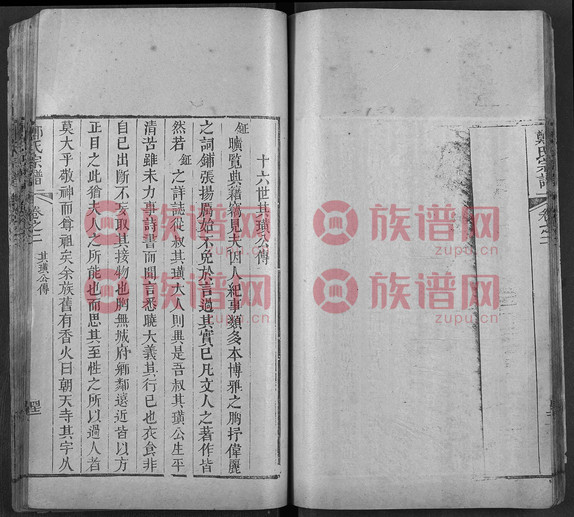 十六世其璜公傳
鉦曠覽典籍竊見夫因人紀事類多本博雅之胸抒偉麗
之詞鋪張揚厲始不免於言過其實已凡文人之著作皆
然若鉦之詳誌從叔其璜大人則異是吾叔其璜公生平
清苦雖未力事詩書而聞言悉曉大義其行已也衣食非
自己出斷不妄取其接物也胸無城府鄉鄰遠近皆以方
正目之此猶夫人之所能也而思其至性之所以過人者
莫大乎敬神而尊祖矣余族舊有香火曰朝天寺其字久
鄭氏宗譜
卷之二
其璜公傳
鄭氏宗譜
卷之二
族谱网
zupu.cn
族谱网
zupu.cn
族谱网
zupu.cn
族谱网
zupu.cn